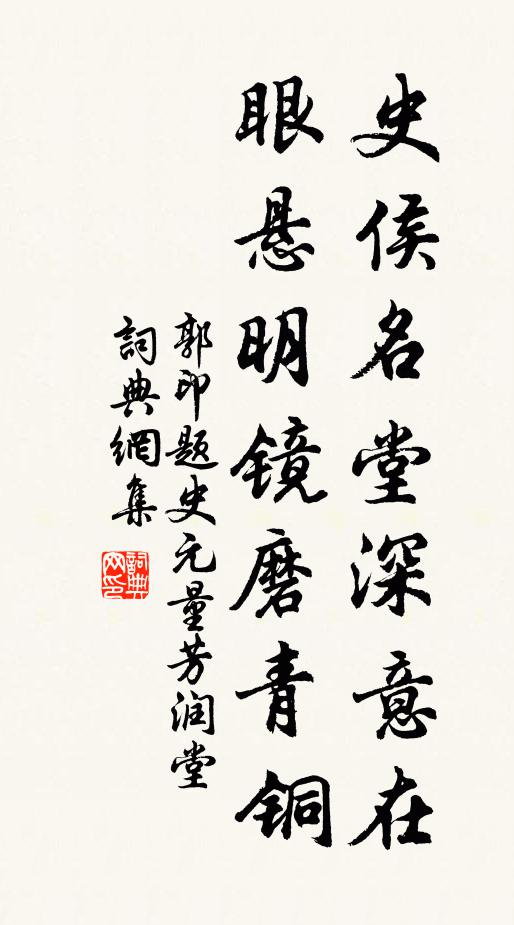 史侯名堂深意在
眼悬明镜磨青铜
郭印题史元量芳润堂
詞典網集
詞典
网印